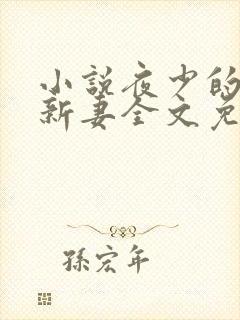 小説夜少的
新妻全文免
孫宏年